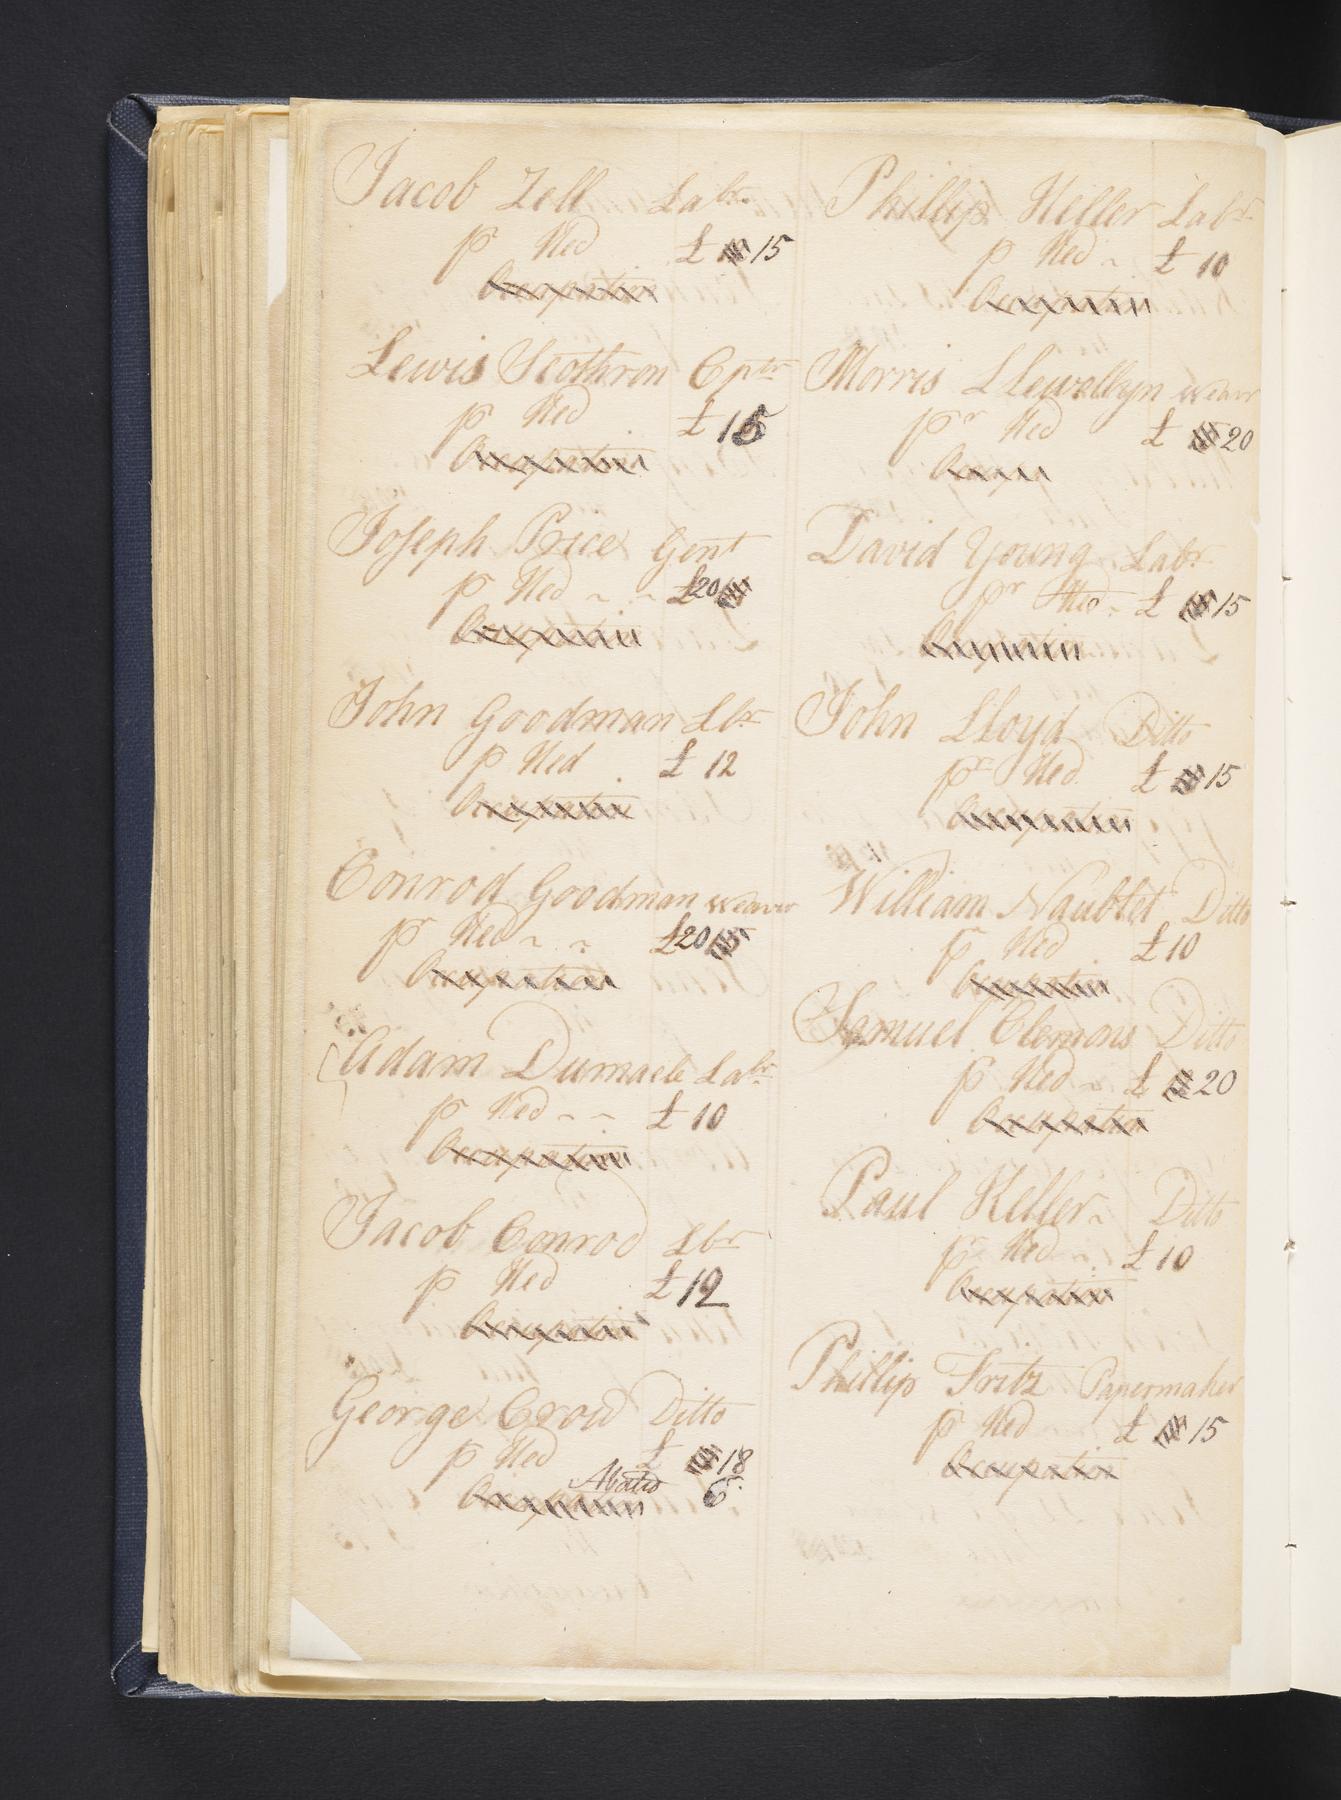 Jacob Zell Labr.
p Hed £ 15
Occupation
Lewis Scothron Cptr
p Hed £ 15
Occupation
Joseph Price Gent
p Hed £20
Occupation
John Goodman Lbr
p Hed £ 12
Occupation
Conrod Goodman Weaver
pr Hed £20 15
Occupation
Adam Dumaele Labr.
p Hed £ 10
Occupation
Jacob Conrod Lbr
p Hed £ 12
Occupation
George Crow Ditto
p Hed £ 18
Abated 6
Occupation
Phillip Heller Labr
p Hed £ 10
Occupation
Morris Llewellyn Weavr
pr Hed £ 20
Occup
David Young Labr
pr Hed £ 15
Occupation
John Lloyd Ditto
pr Hed £ 15
Occupation
William Naublet Ditto
p Hed £ 10
Occupation
Samuel Clemons Ditto
p Hed £ 20
Occupation
Paul Keller Ditto
pr Hed £ 10
Occupation
Phillip Fritz Papermaker
p Hed £ 15
Occupation